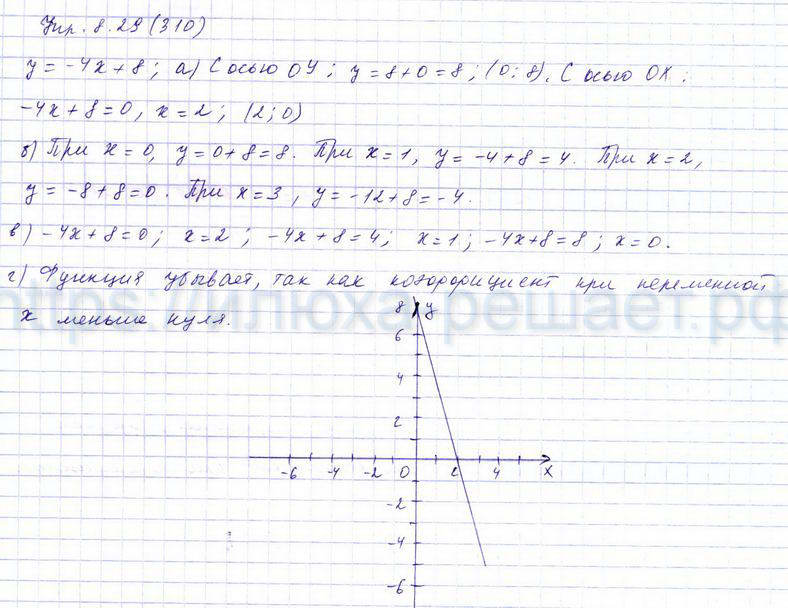 Упр. 8.29 (310)
y = -4x + 8; а) С осью OY; y = 8 + 0 = 8; (0; 8). С осью OX:
-4x + 8 = 0, x = 2; (2; 0)
б) При x = 0, y = 0 + 8 = 8. При x = 1, y = -4 + 8 = 4. При x = 2,
y = -8 + 8 = 0. При x = 3, y = -12 + 8 = -4.
в) -4x + 8 = 0; x = 2; -4x + 8 = 4; x = 1; -4x + 8 = 8; x = 0.
г) Функция убывает, так как коэффициент при переменной
https://илюха-решает.рф
x меньше нуля.
8 y
6
4
2
-6 -4 -2 0 2 4 x
-2
-4
-6